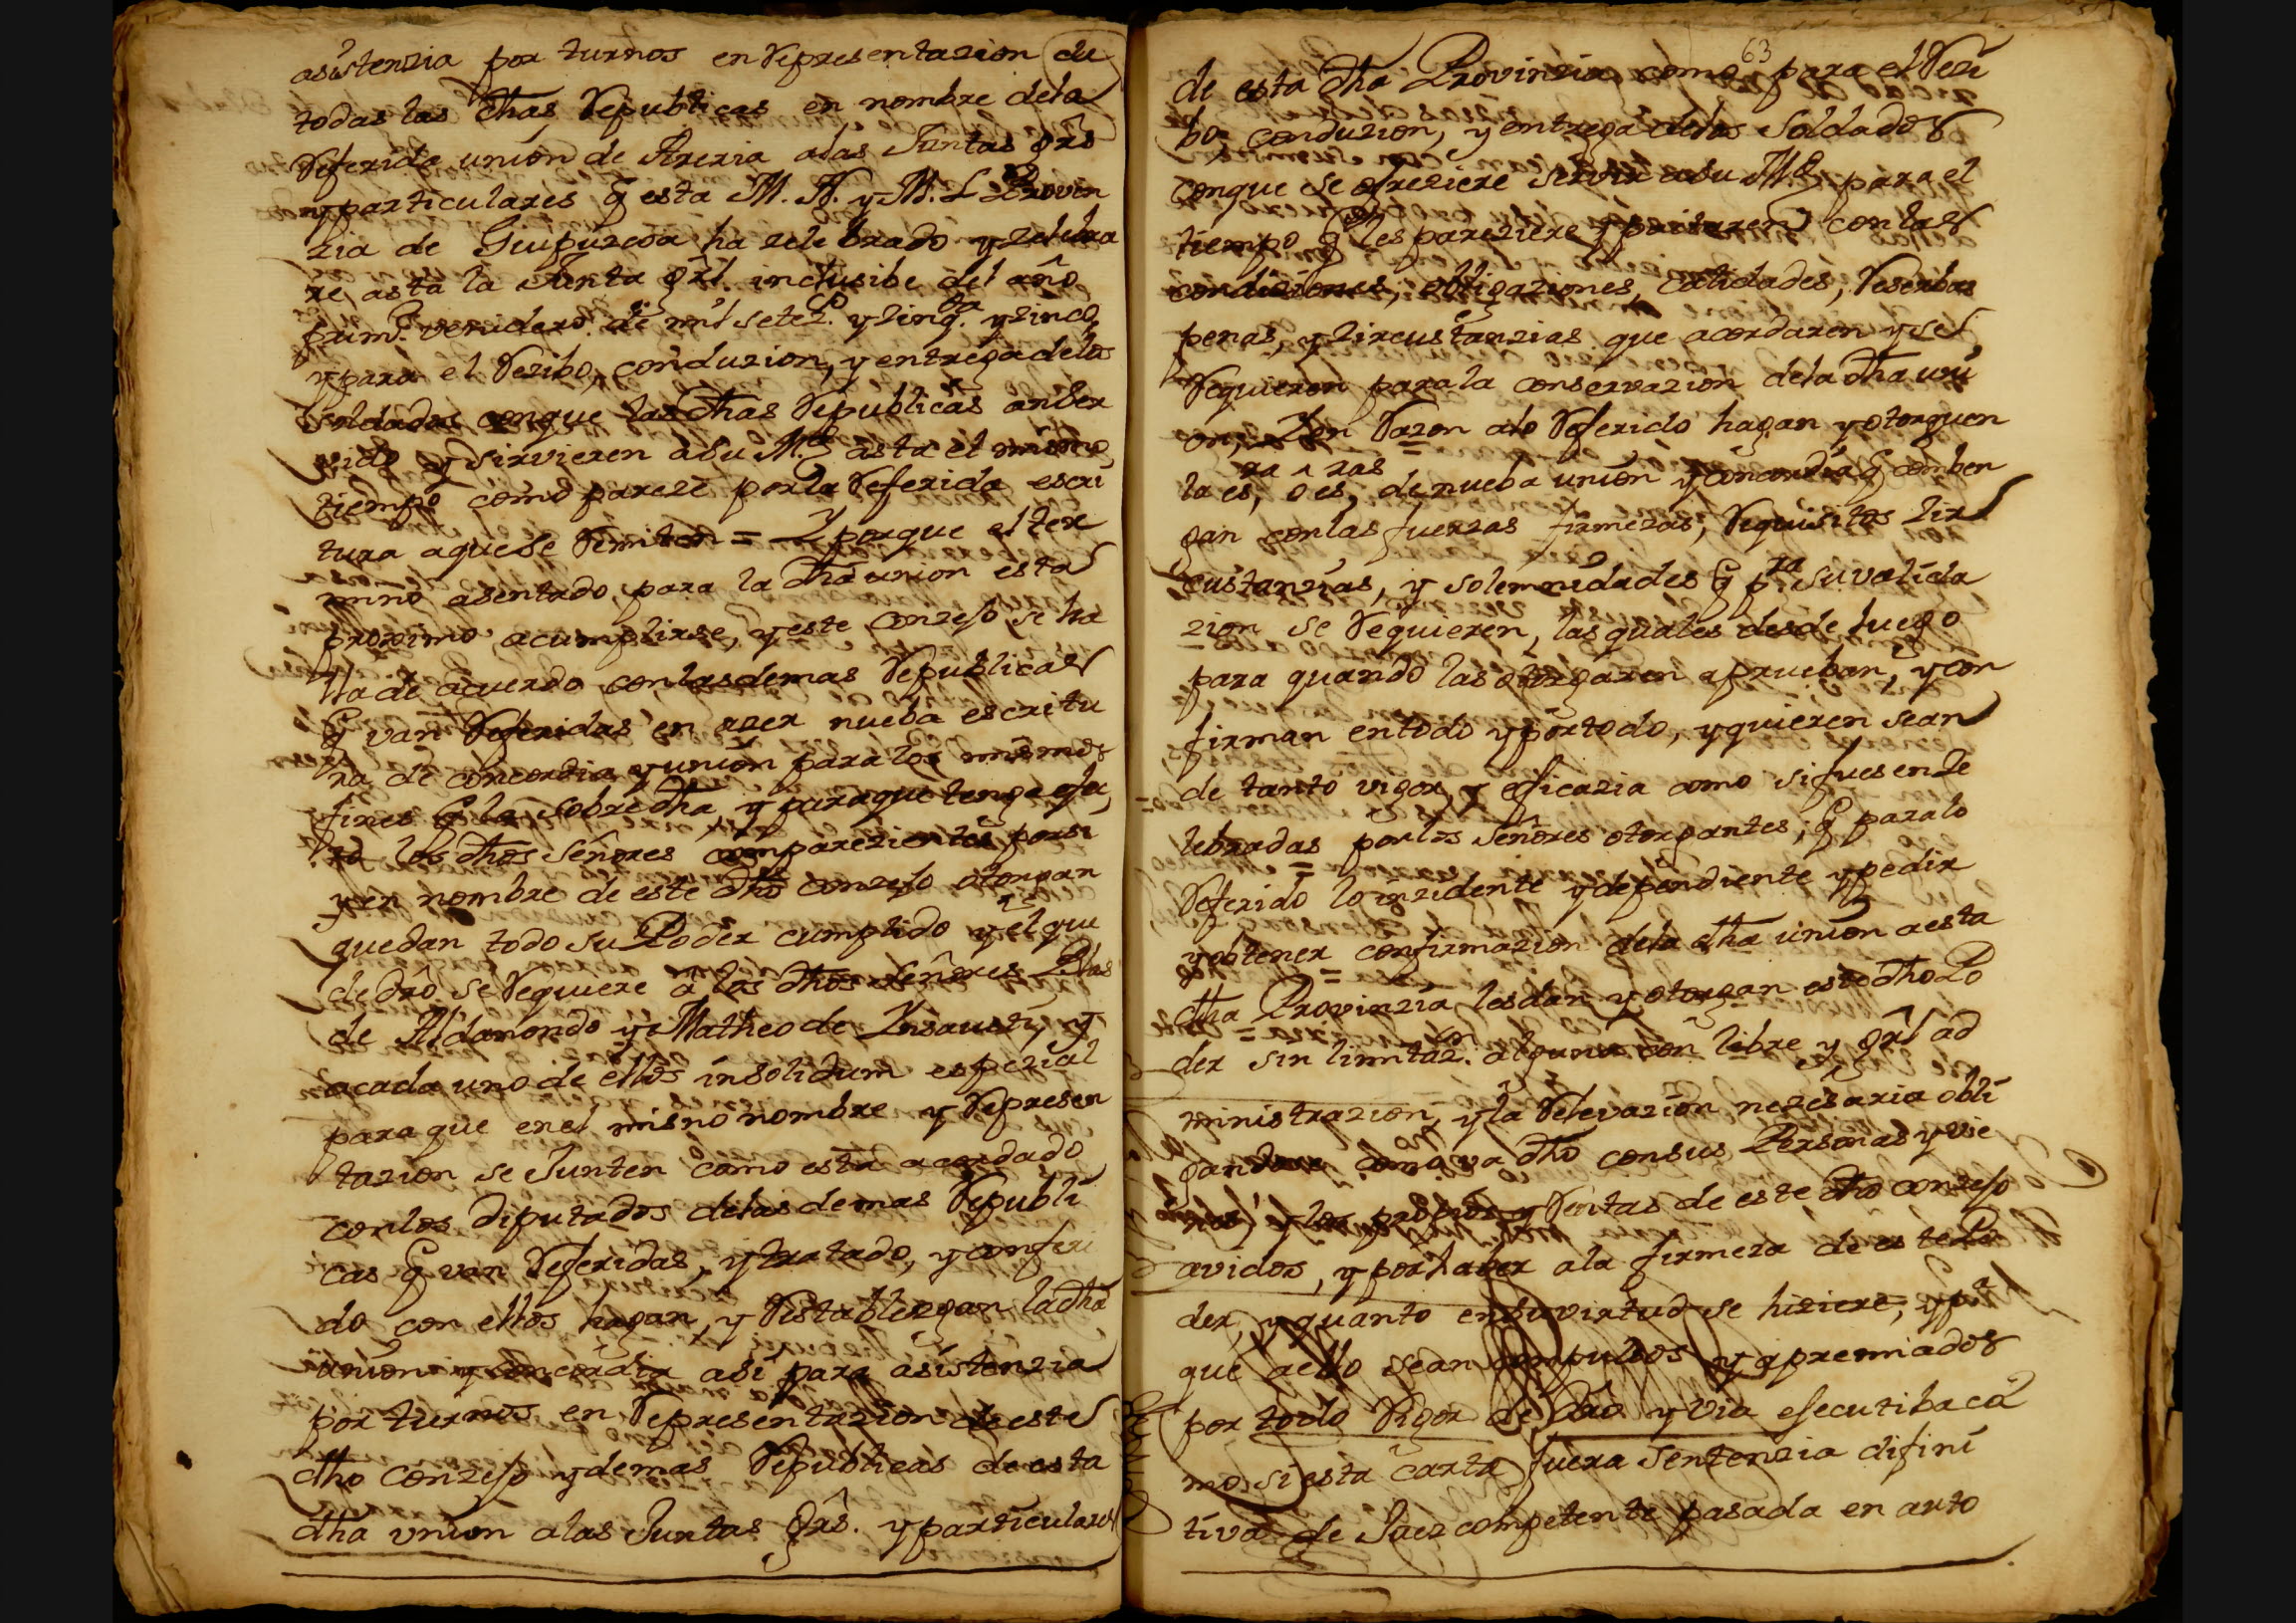 asistenzia por turnos en Representazion de
todas las dhas Republicas en nombre dela
Referida union de Areria alas Juntas grs
y particulares q esta M. N. y M. L Provin
zia de Guipuzcoa ha zelebrado y zelebra
re asta la Junta grl. inclusibe del año
prim.o venidero de mil setez.s y zinq.ta y zinco
y para el Rezibo, conduzion, y entrega delos
soldados conque las dhas Republicas an ser
vido y sirvieren a su Mg.d asta el mismo
tiempo como pareze por la Referida escri
tura aque se Remiten = Y porque el ter
mino asentado para la dha union esta
proximo acumplirse, y este conzejo se ha
lla de acuerdo conlas demas Republicas
q van Referidas en azer nueba escritu
ra de concordia y union para los mismos
fines q la sobre dha, y paraque tenga efec
to los dhos Señores comparezientes por si
y en nombre de este dho conzejo otorgan
quedan todo su Poder cumplido y el que
de dro se Requiere â los dhos señores Blas
de Aldanondo y Matheo de Ynsausti, y
acada uno de ellos insolidum espezial
para que enel mismo nombre y Represen
tazion se Junten como esta acordado
conlos diputados delas demas Republi
cas q van Referidas, y tratado, y conferi
do con ellos hagan, y Restablezcan la dha
union y concordia asi para asistenzia
por turnos en Representazion de este
dho conzejo y demas Republicas de esta
dha union alas Juntas Grs. y particulares
63
de esta dha Provinzia, como para el Rezi
bo, conduzion, y entrega delos Soldados
conque se ofreziere servir asu Mg.d para el
tiempo q les pareziere y con las
condiziones, obligaziones, calidades, Reserbas
penas, y zircustanzias que acordaren y se
Requieren para la conservazion dela dha uni
on, Y en Razon alo Referido hagan y otorguen
ra ^ ras
la es, o es, de nueba union y concordia q comben
gan con las fuerzas firmezas, Requisitos zir
custanzias, y solemnidades q p.ra su valida
zion se Requieren, las quales desde luego
para quando las otorgaren aprueban, y con
firman entodo y portodo, y quieren sean
de tanto vigor, y eficazia como si fuesen ze
lebradas por los Señores otorgantes; q para lo
Referido lo inzidente y dependiente y pedir
y obtener confirmazion dela dha union a esta
dha Provinzia les dan y otorgan este dho Po
der sin limitaz.on alguna con libre y grl ad
ministrazion, y la Relevazion nezesaria obli
gandose como va dho consus Personas y vie
nes, y los propios y Rentas de este dho conzejo
avidos, y por haber ala firmeza de este Po
der, y quanto en su virtud se hiziere, y p.a
que aello sean compulsos y apremiados
por todo Rigor de dro y via ejecutiba co
mo si esta carta fuera sentenzia difini
tiva de Juez competente pasada en auto